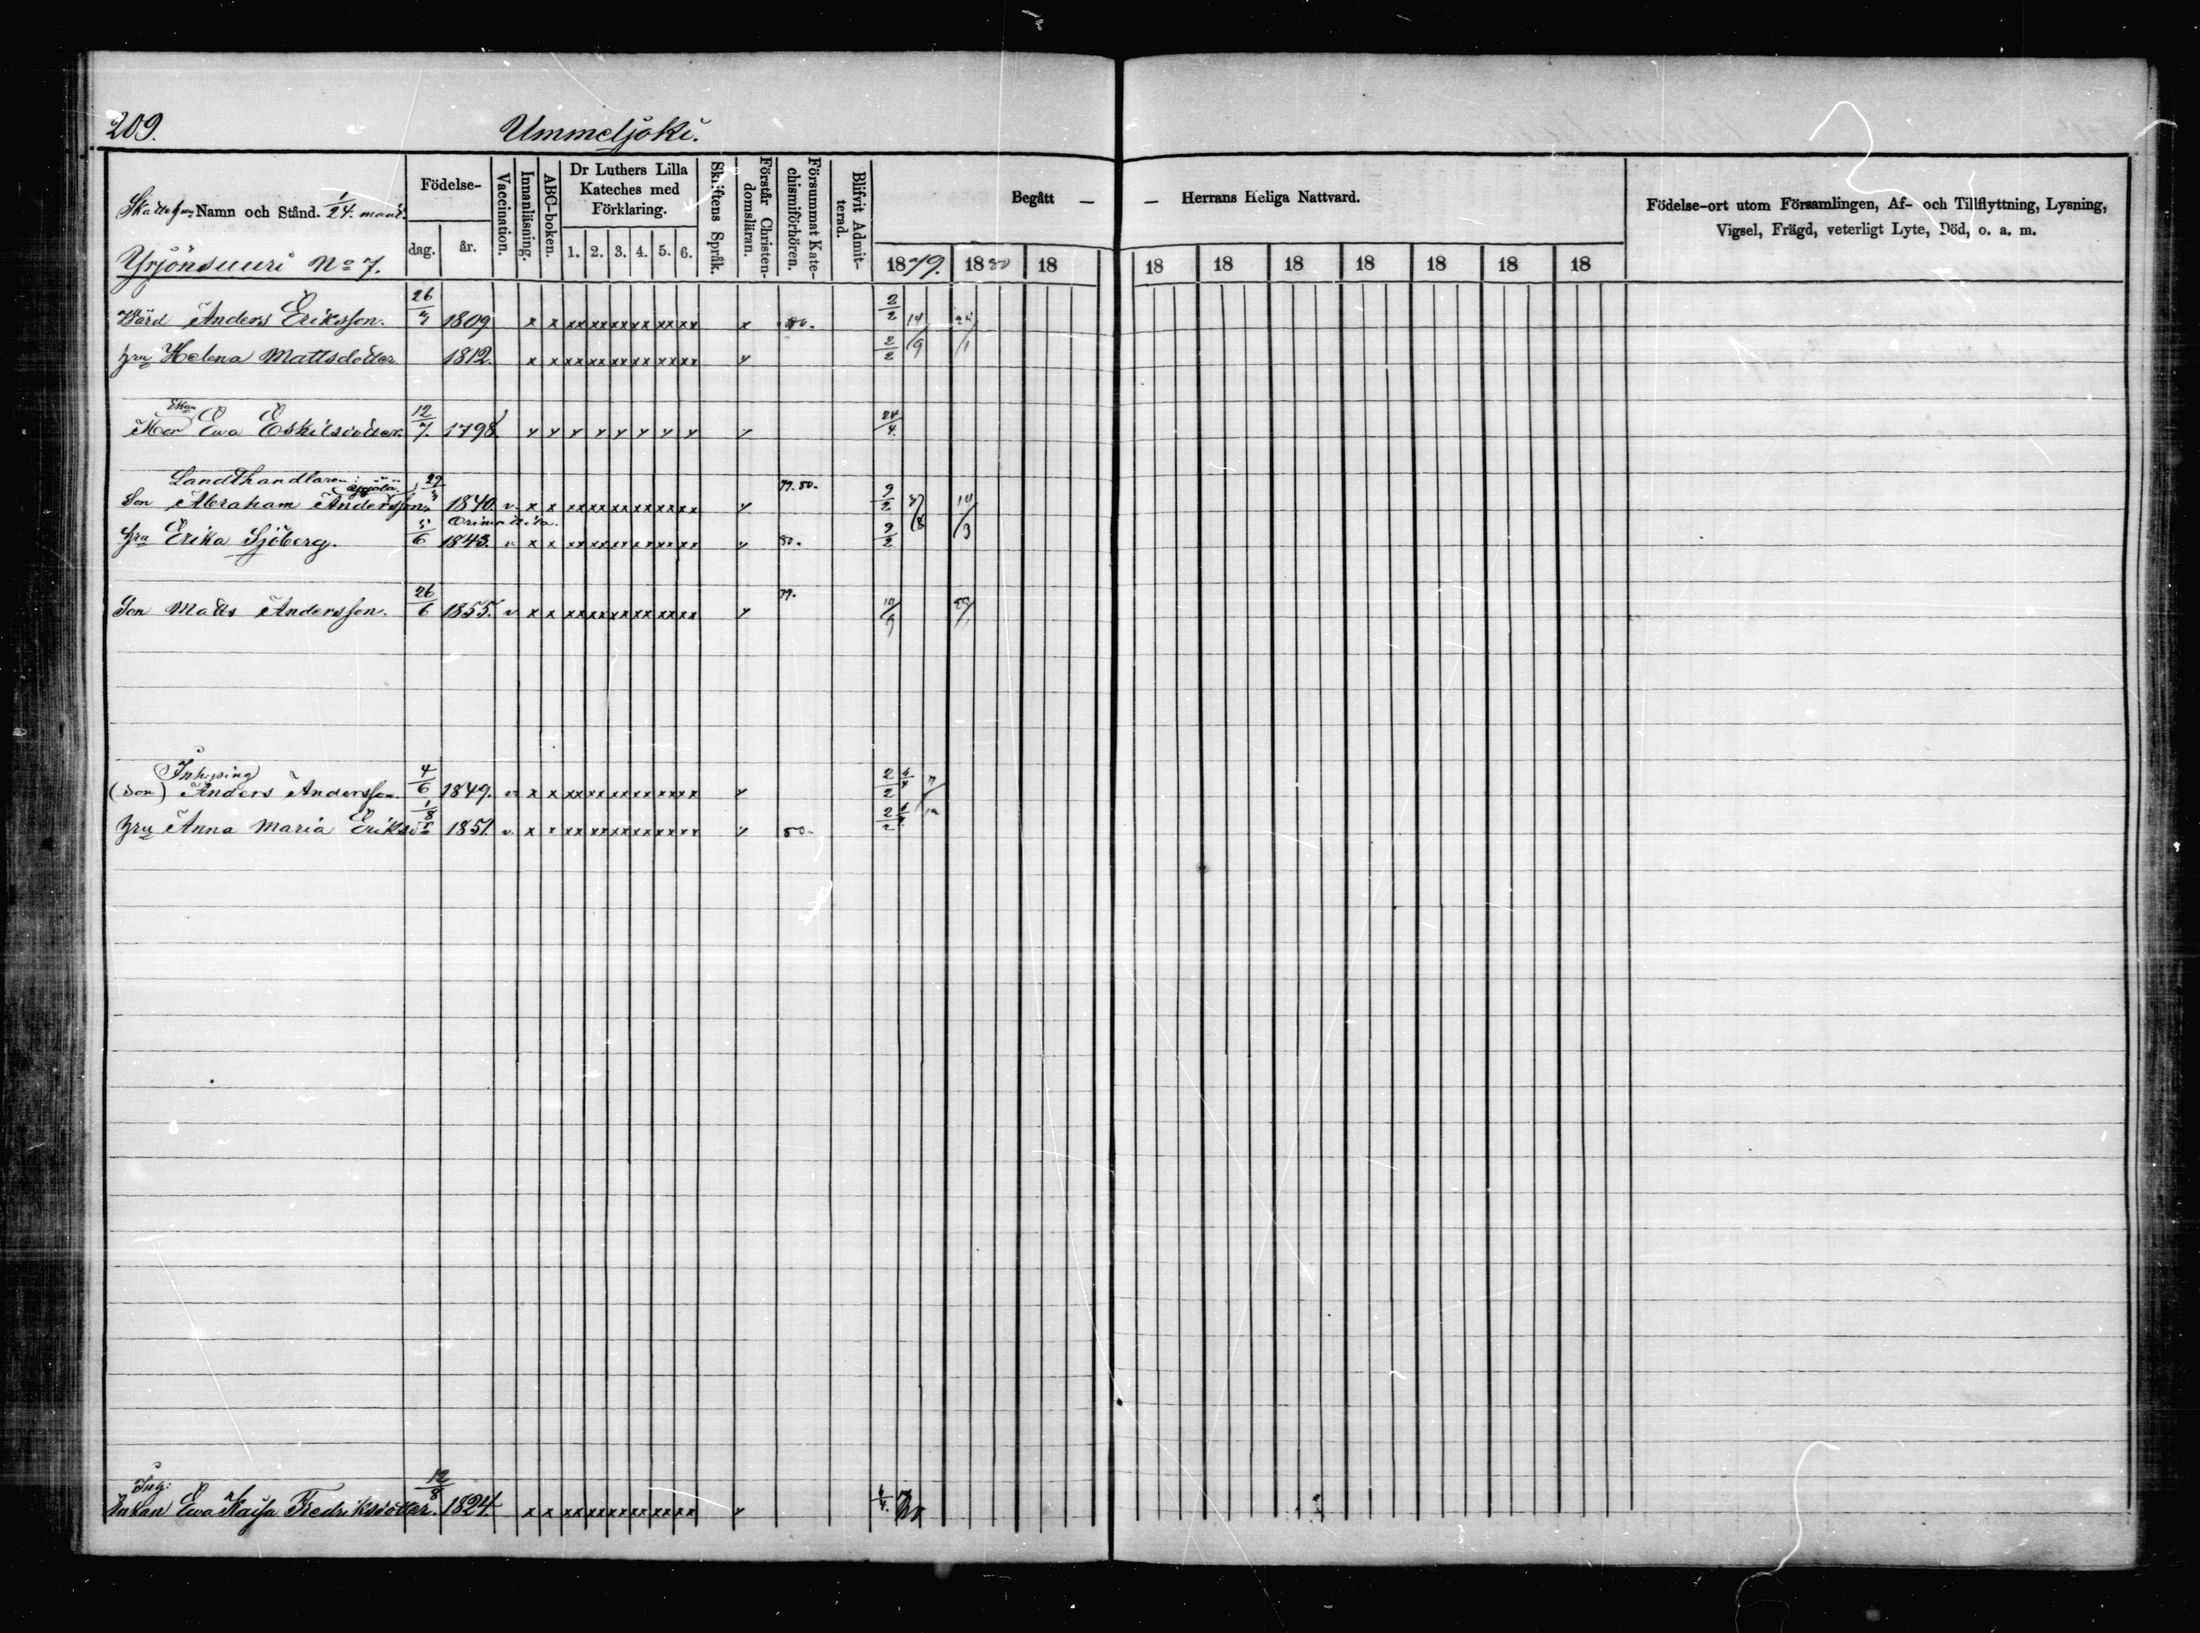 209.
Ummeljoki.
Skattehm Namn och Stånd. 1/24. mant.
Födelse-
dag. år.
Vaccination.
Innanläsning.
ABC-boken.
Dr Luthers Lilla
Kateches med
Förklaring.
1. 2. 3. 4. 5. 6.
Skriftens Språk.
Förstår Christen-
domsläran.
Försummat Kate-
chismiförhören.
Blifvit Admit-
terad.
Begått — — Herrans Heliga Nattvard.
1879. 1880 18 18 18 18 18 18 18 18
Födelse-ort utom Församlingen, Af- och Tillflyttning, Lysning,
Vigsel, Frägd, veterligt Lyte, Död, o. a. m.
Yrjönsuuri No 7.
Wärd Anders Eriksson. 1809 x x xx xx xx xx xx xx x 80. 2/2 14/9
hru Helena Mattsdotter 1812. x x xx xx xx xx xx xx 2/2
Mor Ewa Eskilsdotter. 12/7. 1798. 24/4.
Landthandlaren
Son Abraham Andersson. 1840. v. x x xx xx xx xx xx xx 79. 80. 14/3
Orimattila.
hru Erika Sjöberg. 5/6 1843. v. x x xx xx xx xx xx xx 80.
Son Matts Andersson. 26/6 1855. v x x xx xx xx xx xx xx 79.
Inhysing
(Son) Anders Andersson 4/6 1849. v x x xx xx xx xx xx xx 2/2
hru Anna Maria Eriksd 1/8 1851. v. x x xx xx xx xx xx xx 80. 2/2
Ing:
Enkan Ewa Kajsa Fredriksdotter. 12/8 1824. x x xx xx xx xx xx xx